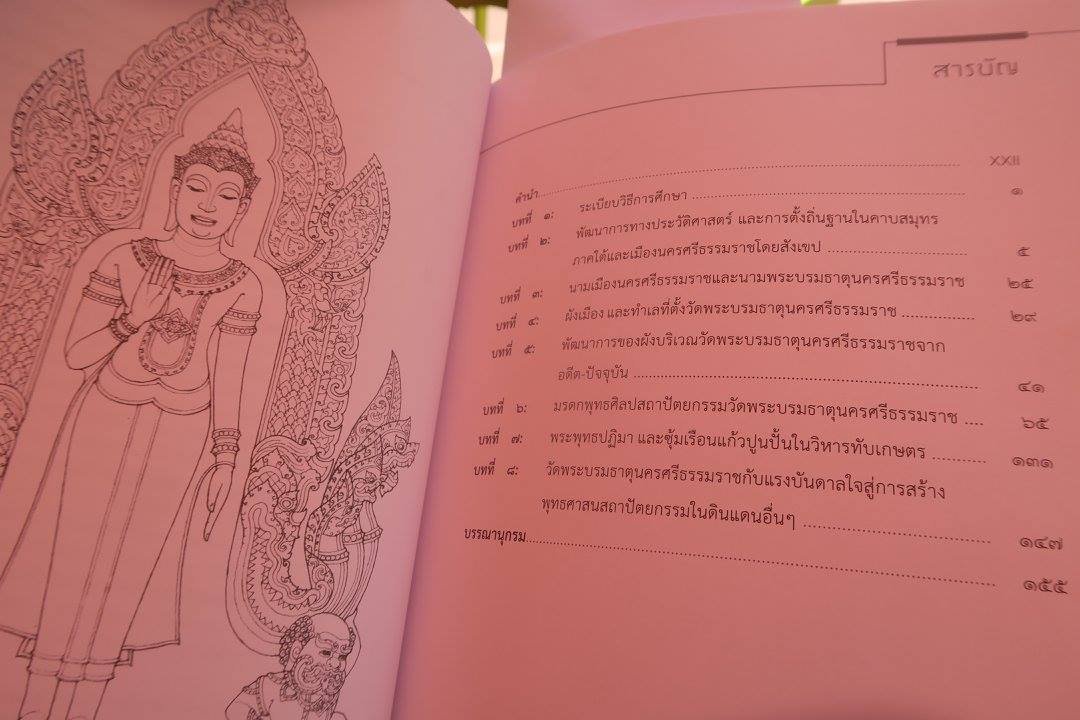 สารบัญ
คำนำ.......................................................................... XXII
บทที่ ๑: ระเบียบวิธีการศึกษา .......................................................... ๑
บทที่ ๒: พัฒนาการทางประวัติศาสตร์ และการตั้งถิ่นฐานในคาบสมุทร
ภาคใต้และเมืองนครศรีธรรมราชโดยสังเขป .............................. ๕
บทที่ ๓: นามเมืองนครศรีธรรมราชและนามพระบรมธาตุนครศรีธรรมราช ๒๕
บทที่ ๔: ผังเมือง และทำเลที่ตั้งวัดพระบรมธาตุนครศรีธรรมราช ............... ๒๙
บทที่ ๕: พัฒนาการของผังบริเวณวัดพระบรมธาตุนครศรีธรรมราชจาก
อดีต-ปัจจุบัน ...................................................................... ๔๑
บทที่ ๖: มรดกพุทธศิลปสถาปัตยกรรมวัดพระบรมธาตุนครศรีธรรมราช .... ๖๕
บทที่ ๗: พระพุทธปฏิมา และซุ้มเรือนแก้วปูนปั้นในวิหารทับเกษตร ........... ๑๓๑
บทที่ ๘: วัดพระบรมธาตุนครศรีธรรมราชกับแรงบันดาลใจสู่การสร้าง
พุทธศาสนสถาปัตยกรรมในดินแดนอื่นๆ .................................... ๑๔๗
บรรณานุกรม..................................................................................... ๑๕๕